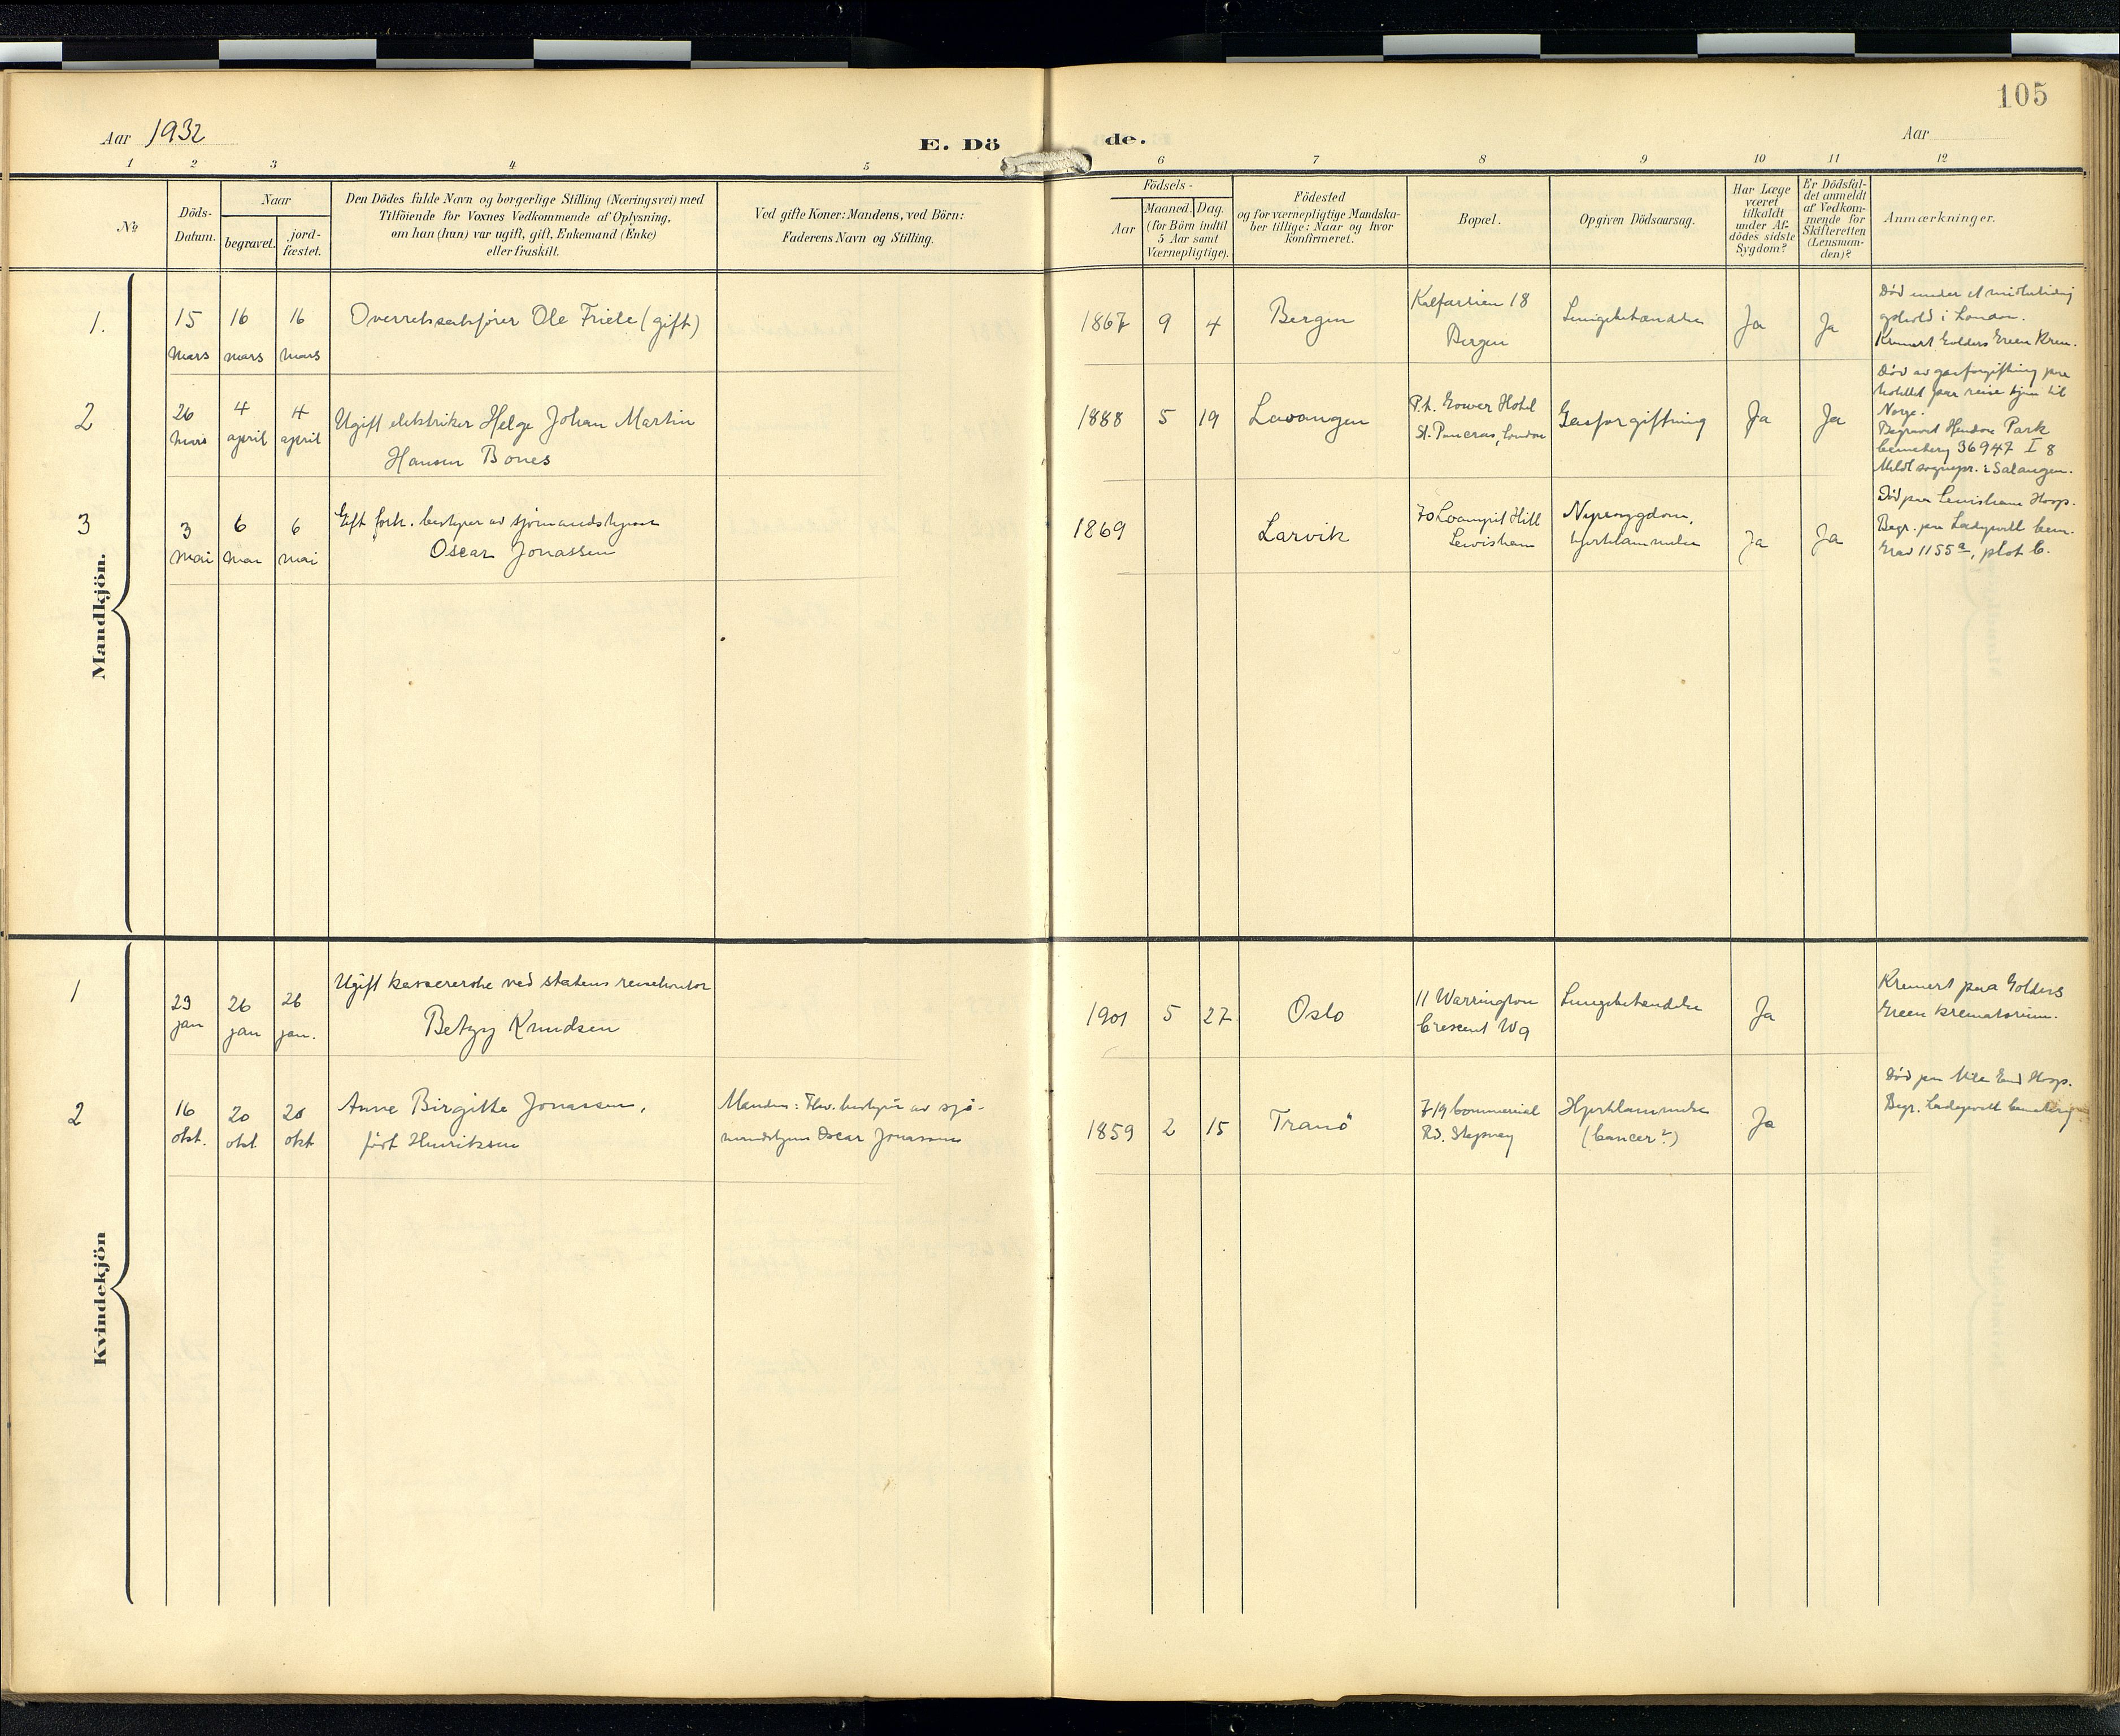 105
Aar 1932
E. Dö
de.
Aar
1 2 3 4 5 6 7 8 9 10 11 12
No
Döds-
Datum.
Naar
begravet.
jord-
fæstet.
Den Dödes fulde Navn og borgerlige Stilling (Næringsvei) med
Tilföiende for Voxnes Vedkommende af Oplysning,
om han (hun) var ugift, gift, Enkemand (Enke)
eller fraskilt.
Ved gifte Koner: Mandens, ved Börn:
Faderens Navn og Stilling.
Födsels-
Aar
Maaned. Dag.
(for Börn indtil
5 Aar samt
Værnepligtige).
Födested
og for værnepligtige Mandska-
ber tillige: Naar og hvor
konfirmeret.
Bopæl.
Opgiven Dödsaarsag.
Har Læge
været
tilkaldt
under Af-
dödes sidste
Sygdom?
Er Dödsfal-
det anmeldt
af Vedkom-
mende for
Skifteretten
(Lensman-
den)?
Anmærkninger.
Mandkjön.
1.
15
mars
16
mars
16
mars
Overretssakfører Ole Friele (gift)
1867 9 4
Bergen
Kalfarlien 18
Bergen
Lungebetændelse
Ja
Ja
Død under et midlertidig
ophold i London.
Kremert Golders Green Krem.
2
26
mars
4
april
4
april
Ugift elektriker Helge Johan Martin
Hansen Bones
1888 5 19
Lavangen
P.t. Gower Hotel
St. Pancras, London
Gasforgiftning
Ja
Ja
Død av gasforgiftning paa
hotellet paa reise hjem til
Norge.
Begravet Hendon Park
Cemetery 36947 I 8
Meldt sognepr. i Salangen.
3
3
mai
6
mai
6
mai
Gift forh. bestyrer av sjømandshjem
Oscar Jonassen
1869
Larvik
70 Loampit Hill
Lewisham
Nyresygdom,
hjertelammelse
Ja
Ja
Død paa Lewisham Hosp.
Begr. paa Ladywell Cem.
Grav 1155a, plot C.
Kvindekjön
1
23
jan
26
jan
26
jan.
Ugift kassererske ved statens reisekontor
Betzy Knudsen
1901 5 27
Oslo
11 Warrington
Crescent W9
Lungebetændelse
Ja
Kremert paa Golders
Green krematorium.
2
16
okt.
20
okt
20
okt
Anne Birgitte Jonassen,
født Henriksen
Manden: Fhv. bestyrer av sjø-
mandshjem Oscar Jonassen
1859 2 15
Tranö
719 Commercial
Rd. Stepney
Hjertelammelse
(Cancer?)
Ja
Død paa Mile End Hosp.
Begr. Ladywell Cemetery